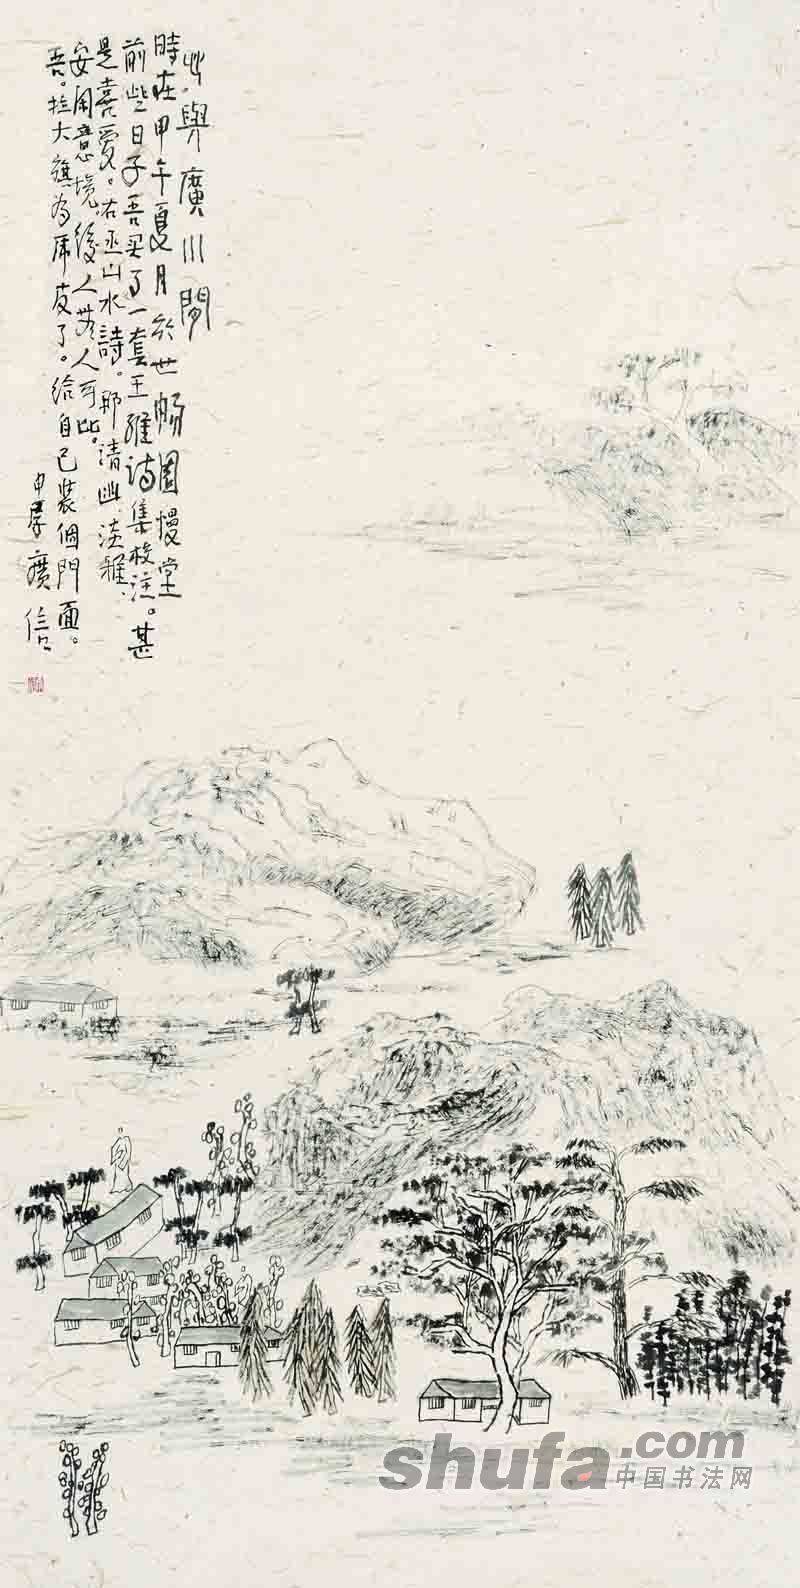 與廣川
時在甲午夏月於世暢園慢堂
前些日子吾买了一套王維詩集校注。甚
是喜愛。右丞山水詩。那清幽淡雅、
安閑意境，後人無人可比。
吾。拉大旗为虎皮了。给自己装個門面。
廣信
shufa.com
中国书法网